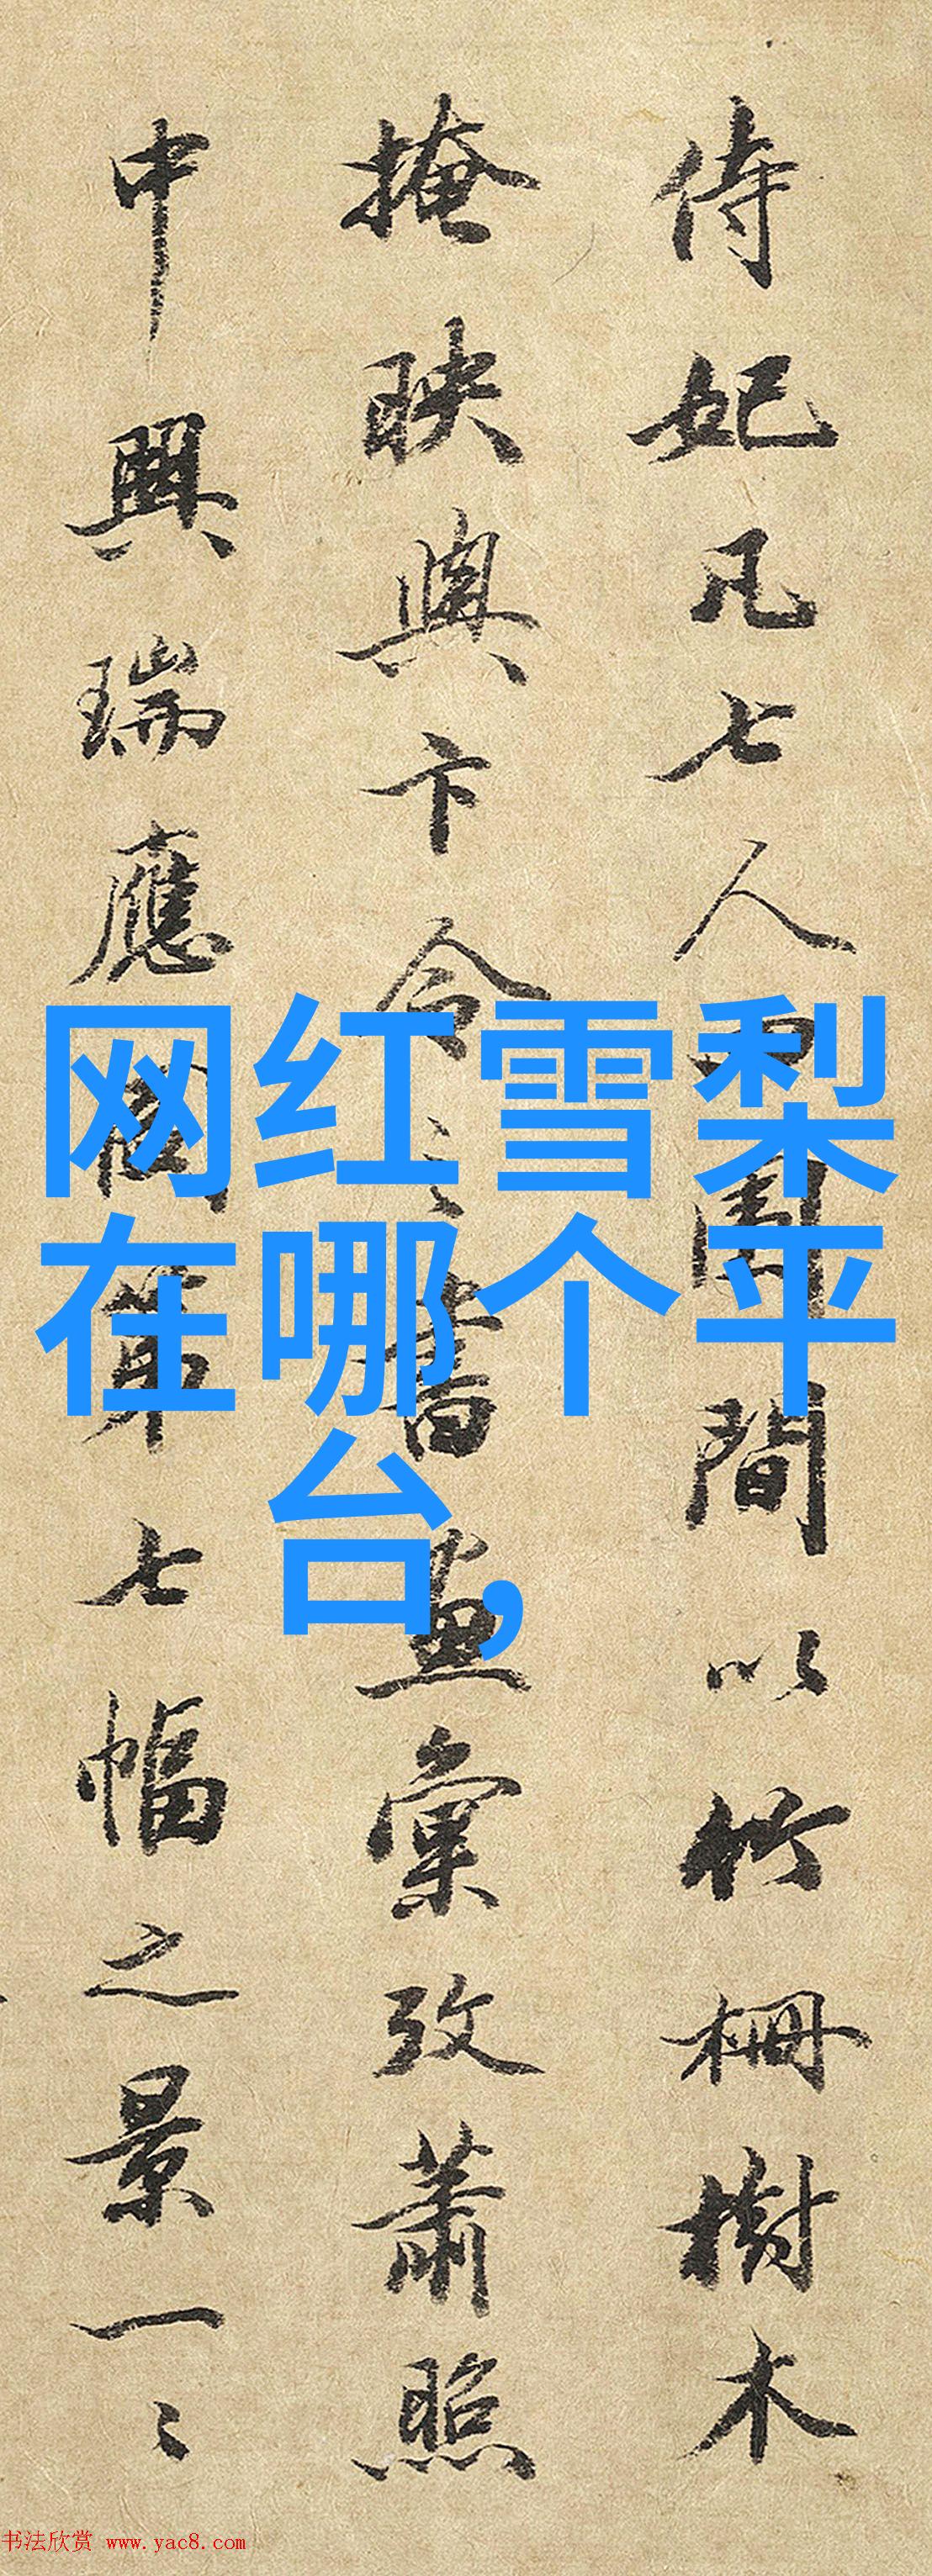 侍妃凡七人
間以竹柵樹木
掩映與卞令
書畫彙攷蕭照
中興瑞應
七幅之景一〻
网红雪梨
在哪个平
台，
书法欣赏 www.yac8.com